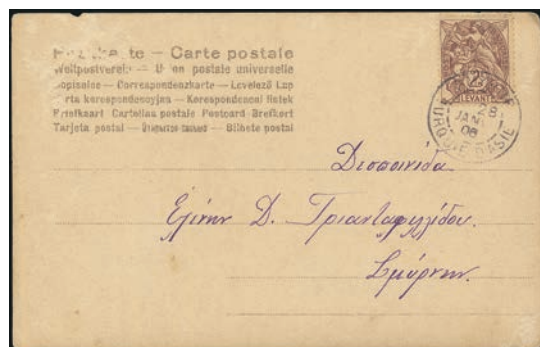 Postkarte — Carte postale
Weltpostverein — Union postale universelle
Dopisnice — Correspondenzkarte — Levelező Lap
Karta korespondencyjna — Korespondencni listek
Briefkaart Cartolina postale Postcard Brefkort
Tarjeta postal — — Bilhete postal
2
LEVANT
28
JANV
08
TURQUIE D'ASIE
Δεσποινίδα
Ἑλένην Δ. Τριανταφυλλίδου.
Σμύρνην.